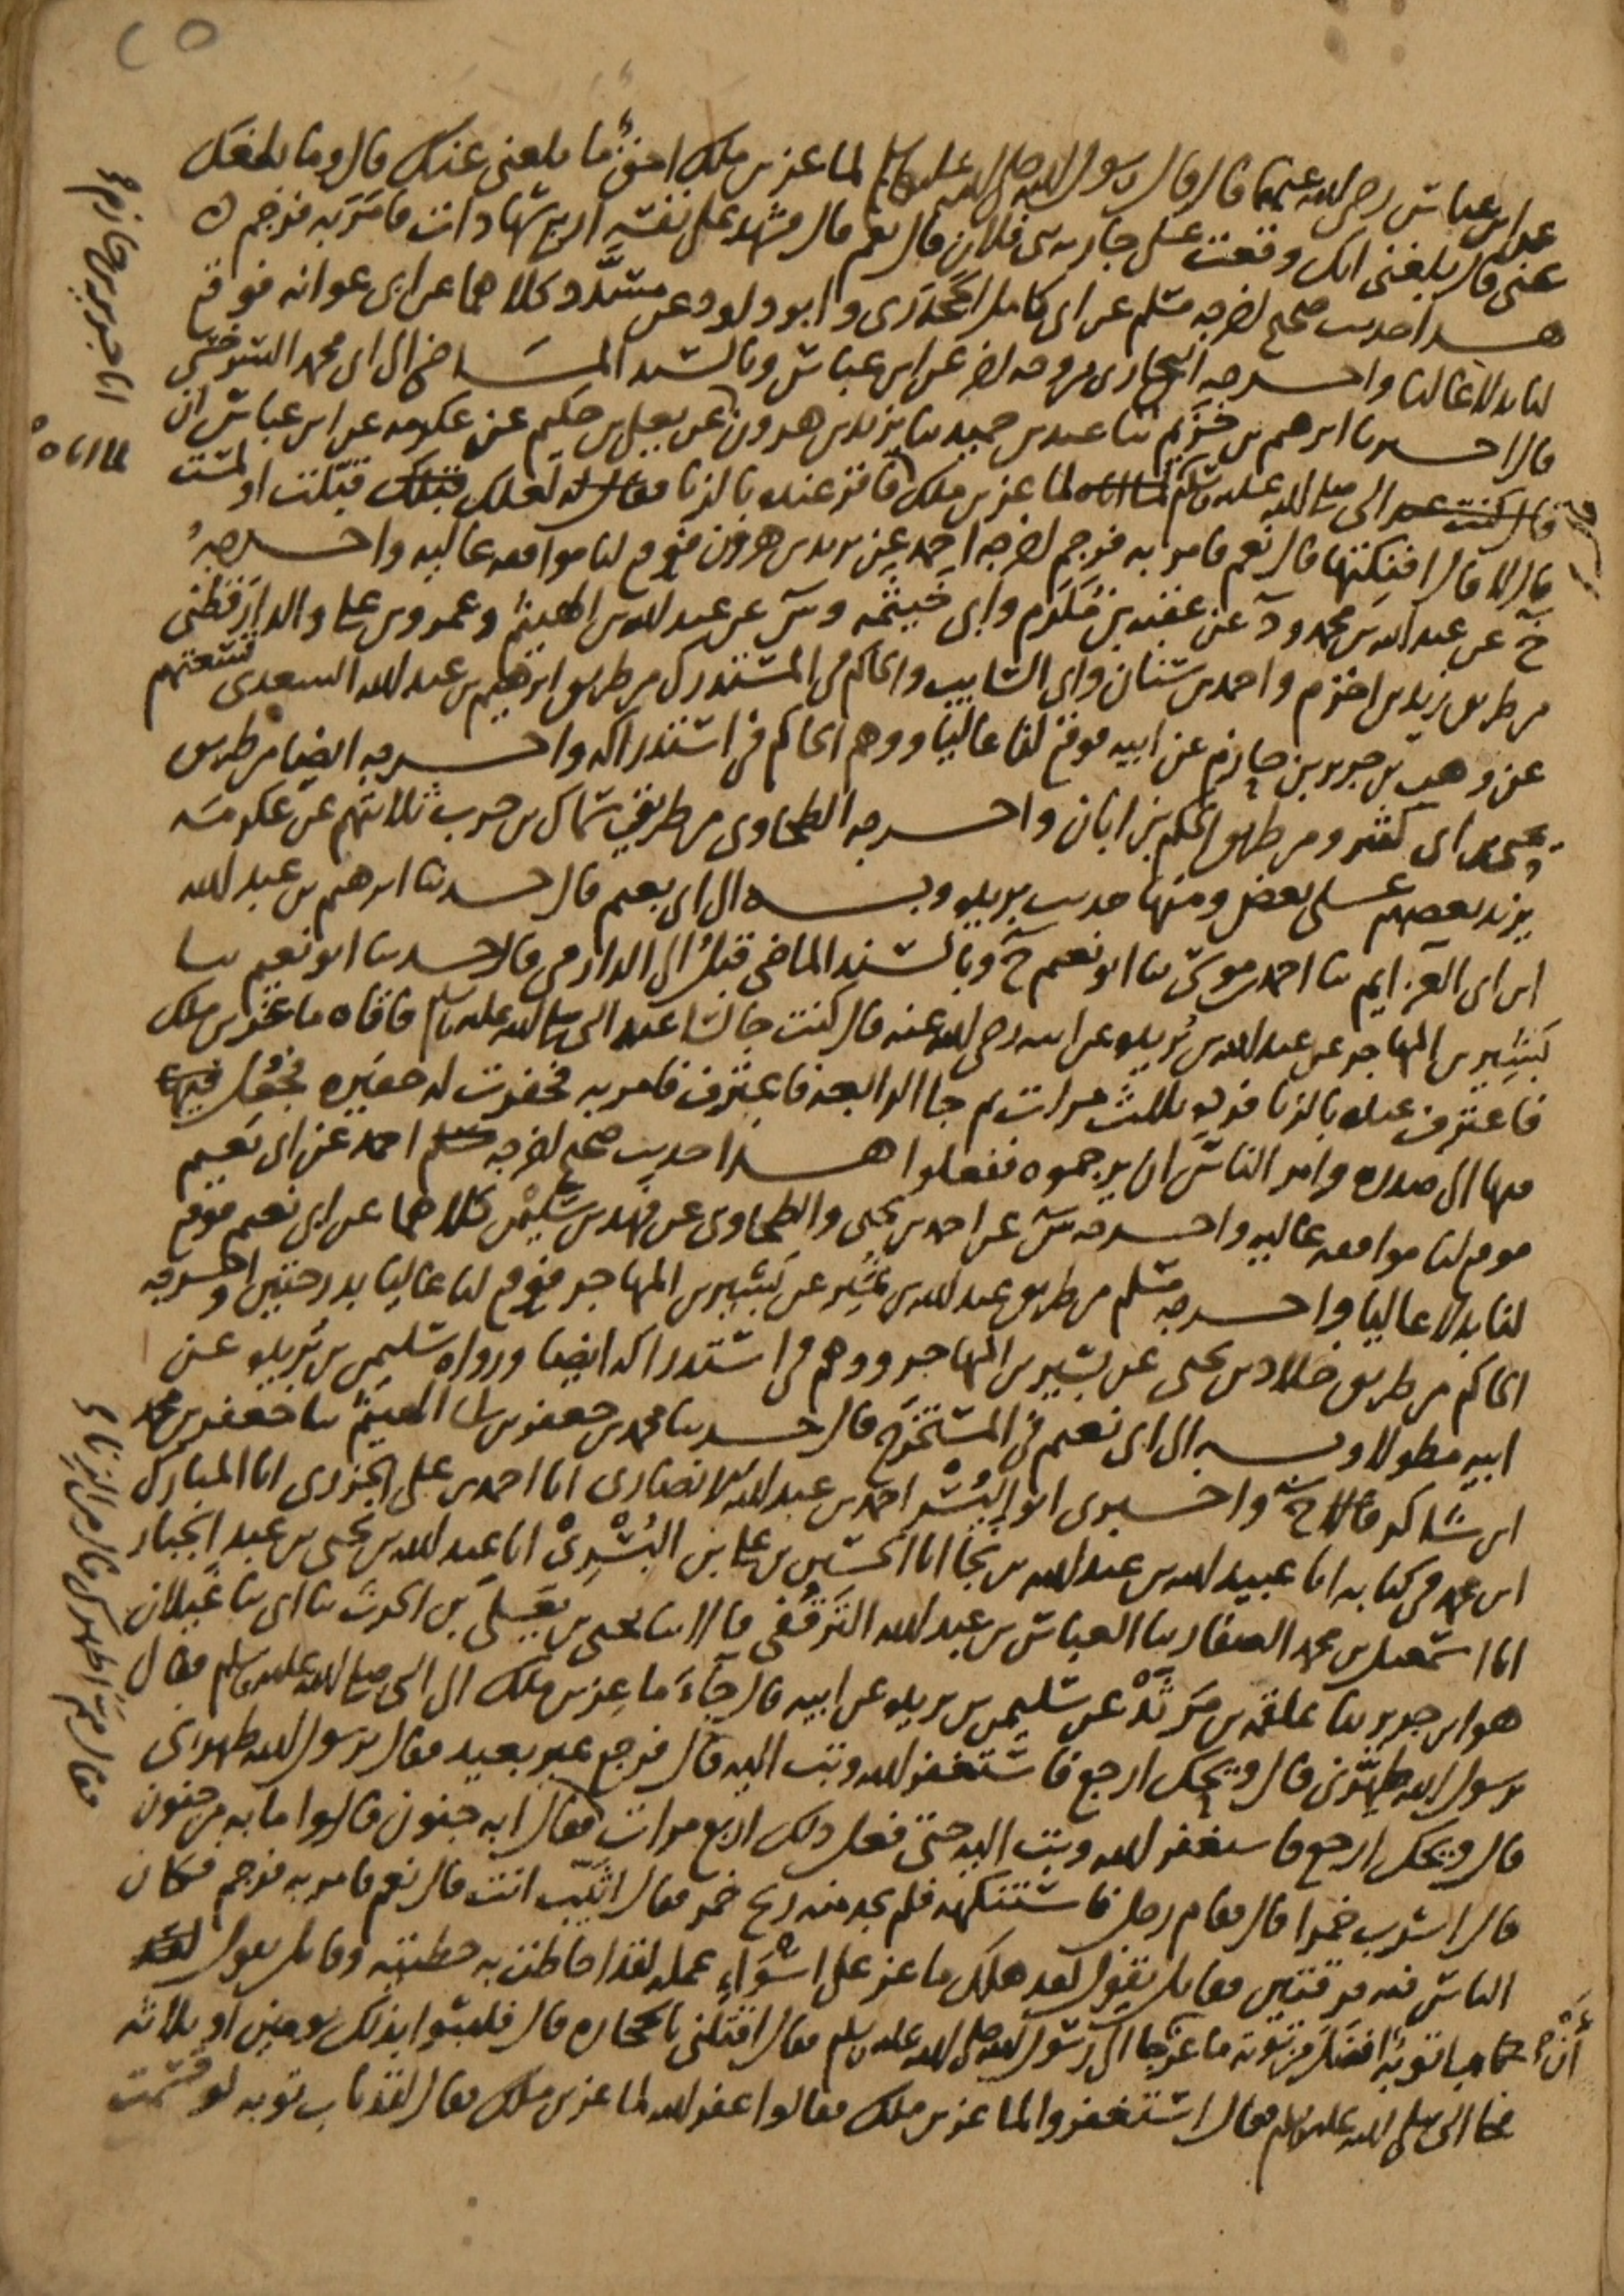 ٢٥
عن ابن عباس رضى الله عنهما قال قال رسول الله صلى الله عليه وسلم لماعز بن ملك احق ما بلغنى عنك قال وما بلغك
عنى قال بلغنى انك وقعت على جارية بنى فلان قال نعم قال فشهد على نفسه اربع شهادات فامر به فرجم
هذا حديث صحيح اخرجه مسلم عن ابى كامل الجحدرى وابو داود عن مسدد كلاهما عن ابى عوانه فوقع
لنا بدلا عاليا واخرجه البخارى من وجه اخر عن ابن عباس وبالسند الماضى الى ابى محمد السرخسى
قال اخبرنا ابرهيم بن خزيم ثنا عبد بن حميد ثنا يزيد بن هرون عن يعلى بن حكيم عن عكرمه عن ابن عباس ان
النبى صلى الله عليه وسلم لما اتاه ماعز بن ملك فاقر عنده بالزنا لعلك قبلت او لمست
قال لا قال افنكتها قال نعم فامر به فرجم اخرجه احمد عن يزيد بن هرون فوقع لنا موافقه عاليه واخرجه
خ عن عبد الله بن محمد ود عن عقبه بن مكرم وابى خيثمه وس عن عبد الله بن الهيثم وعمرو بن على والدارقطنى
من طريق زيد بن اخزم واحمد بن سنان وابى السايب والحاكم فى المستدرك من طريق ابرهيم بن عبد الله السعدى تسعتهم
عن وهب بن جرير بن حازم عن ابيه فوقع لنا عاليا ووهم الحاكم فى استدراكه واخرجه ايضا من طريق
يحيى بن ابى كثير ومن طريق الحكم بن ابان واخرجه الطحاوى من طريق سماك بن حرب ثلاثتهم عن عكرمه
يزيد بعضهم على بعض ومنها حديث بريده وبه الى ابى نعيم قال حدثنا ابرهيم بن عبد الله
ابن ابى العزايم ثنا احمد بن موسى ثنا ابو نعيم ح وبالسند الماضى قبل الى الدارمى قال حدثنا ابو نعيم ثنا
بشير بن المهاجر عن عبد الله بن بريده عن ابيه رضى الله عنه قال كنت جالسا عند النبى صلى الله عليه وسلم فاتاه ماعز بن ملك
فاعترف عنده بالزنا فرده ثلث مرات ثم جا الرابعه فاعترف فامر به فحفرت له حفيره فجعل فيها
منها الى صدره وامر الناس ان يرجموه ففعلوا هذا حديث صحيح اخرجه احمد عن ابى نعيم
فوقع لنا موافقه عاليه واخرجه س عن احمد بن يحيى والطحاوى عن فهد بن سليمن كلاهما عن ابى نعيم فوقع
لنا بدلا عاليا واخرجه مسلم من طريق عبد الله بن نمير عن بشير بن المهاجر فوقع لنا عاليا بدرجتين واخرجه
الحاكم من طريق خلاد بن يحيى عن بشير بن المهاجر ووهم فى استدراكه ايضا ورواه سليمن بن بريده عن
ابيه مطولا وبه الى ابى نعيم فى المستخرج قال حدثنا محمد بن جعفر بن الهيثم ثنا جعفر بن محمد
ابن شاكر ح واخبرنى ابو اليسر احمد بن عبد الله الانصارى انا احمد بن على الجزرى انا المبارك
ابن محمد فى كتابه انا عبيد الله بن عبد الله بن نجا انا الحسين بن على بن البسرى انا عبد الله بن يحيى بن عبد الجبار
انا اسمعيل بن محمد الصفار ثنا العباس بن عبد الله الترقفى قالا ثنا يحيى بن يعلى بن الحرث ثنا ابى ثنا غيلان
هو ابن جرير ثنا علقمه بن مرثد عن سليمن بن بريده عن ابيه قال جاء ماعز بن ملك الى النبى صلى الله عليه وسلم فقال
يرسول الله طهرنى قال ويحك ارجع فاستغفر الله وتب اليه قال فرجع غير بعيد فقال يرسول الله طهرنى
قال ويحك ارجع فاستغفر الله وتب اليه حتى فعل ذلك اربع مرات فقال ابه جنون قالوا ما به من جنون
قال اشرب خمرا قال فقام رجل فاستنكهه فلم يجد منه ريح خمر فقال اثيب انت قال نعم فامر به فرجم فكان
الناس فيه فرقتين فقايل يقول لقد هلك ماعز على اسواء عمله لقد احاطت به خطيئته وقايل يقول
توبه افضل من توبه ماعز جا الى رسول الله صلى الله عليه وسلم فقال اقتلنى بالحجاره قال فلبثوا بذلك يومين او ثلاثه
فجا النبى صلى الله عليه وسلم فقال استغفروا لماعز بن ملك فقالوا غفر الله لماعز بن ملك فقال لقد تاب توبه لو قسمت
انا جرير بن حازم
لما اتاه
فقال مم اطهرك قال من الزنا